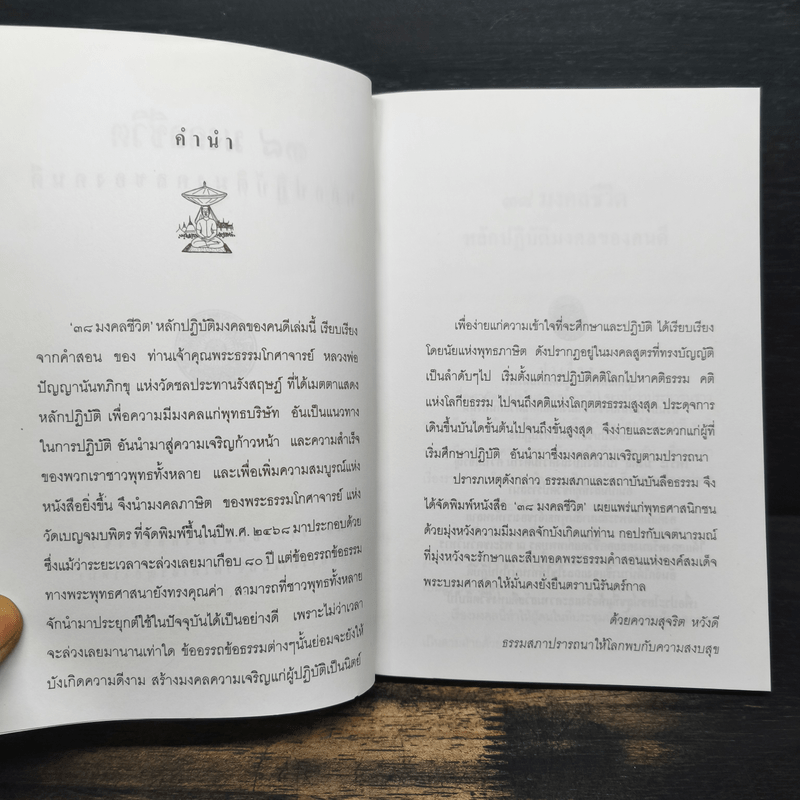 คำนำ
‘๓๘ มงคลชีวิต’ หลักปฏิบัติมงคลของคนดีเล่มนี้ เรียบเรียง
จากคำสอน ของ ท่านเจ้าคุณพระธรรมโกศาจารย์ หลวงพ่อ
ปัญญานันทภิกขุ แห่งวัดชลประทานรังสฤษฎ์ ที่ได้เมตตาแสดง
หลักปฏิบัติ เพื่อความมีมงคลแก่พุทธบริษัท อันเป็นแนวทาง
ในการปฏิบัติ อันนำมาสู่ความเจริญก้าวหน้า และความสำเร็จ
ของพวกเราชาวพุทธทั้งหลาย และเพื่อเพิ่มความสมบูรณ์แห่ง
หนังสือยิ่งขึ้น จึงนำมงคลภาษิต ของพระธรรมโกศาจารย์ แห่ง
วัดเบญจมบพิตร ที่จัดพิมพ์ขึ้นในปีพ.ศ. ๒๔๖๘ มาประกอบด้วย
ซึ่งแม้ว่าระยะเวลาจะล่วงเลยมาเกือบ ๘๐ ปี แต่ข้ออรรถข้อธรรม
ทางพระพุทธศาสนายังทรงคุณค่า สามารถที่ชาวพุทธทั้งหลาย
จักนำมาประยุกต์ใช้ในปัจจุบันได้เป็นอย่างดี เพราะไม่ว่าเวลา
จะล่วงเลยมานานเท่าใด ข้ออรรถข้อธรรมต่างๆนั้นย่อมจะยังให้
บังเกิดความดีงาม สร้างมงคลความเจริญแก่ผู้ปฏิบัติเป็นนิตย์
เพื่อง่ายแก่ความเข้าใจที่จะศึกษาและปฏิบัติ ได้เรียบเรียง
โดยนัยแห่งพุทธภาษิต ดังปรากฏอยู่ในมงคลสูตรที่ทรงบัญญัติ
เป็นลำดับๆไป เริ่มตั้งแต่การปฏิบัติคดีโลกไปหาคดีธรรม คติ
แห่งโลกียธรรม ไปจนถึงคติแห่งโลกุตตรธรรมสูงสุด ประดุจการ
เดินขึ้นบันไดขั้นต้นไปจนถึงขั้นสูงสุด จึงง่ายและสะดวกแก่ผู้ที่
เริ่มศึกษาปฏิบัติ อันนำมาซึ่งมงคลความเจริญตามปรารถนา
ปรารภเหตุดังกล่าว ธรรมสภาและสถาบันบันลือธรรม จึง
ได้จัดพิมพ์หนังสือ ‘๓๘ มงคลชีวิต’ เผยแพร่แก่พุทธศาสนิกชน
ด้วยมุ่งหวังความมีมงคลจักบังเกิดแก่ท่าน กอปรกับเจตนารมณ์
ที่มุ่งหวังจะรักษาและสืบทอดพระธรรมคำสอนแห่งองค์สมเด็จ
พระบรมศาสดาให้มั่นคงยั่งยืนตราบนิรันดร์กาล
ด้วยความสุจริต หวังดี
ธรรมสภาปรารถนาให้โลกพบกับความสงบสุข